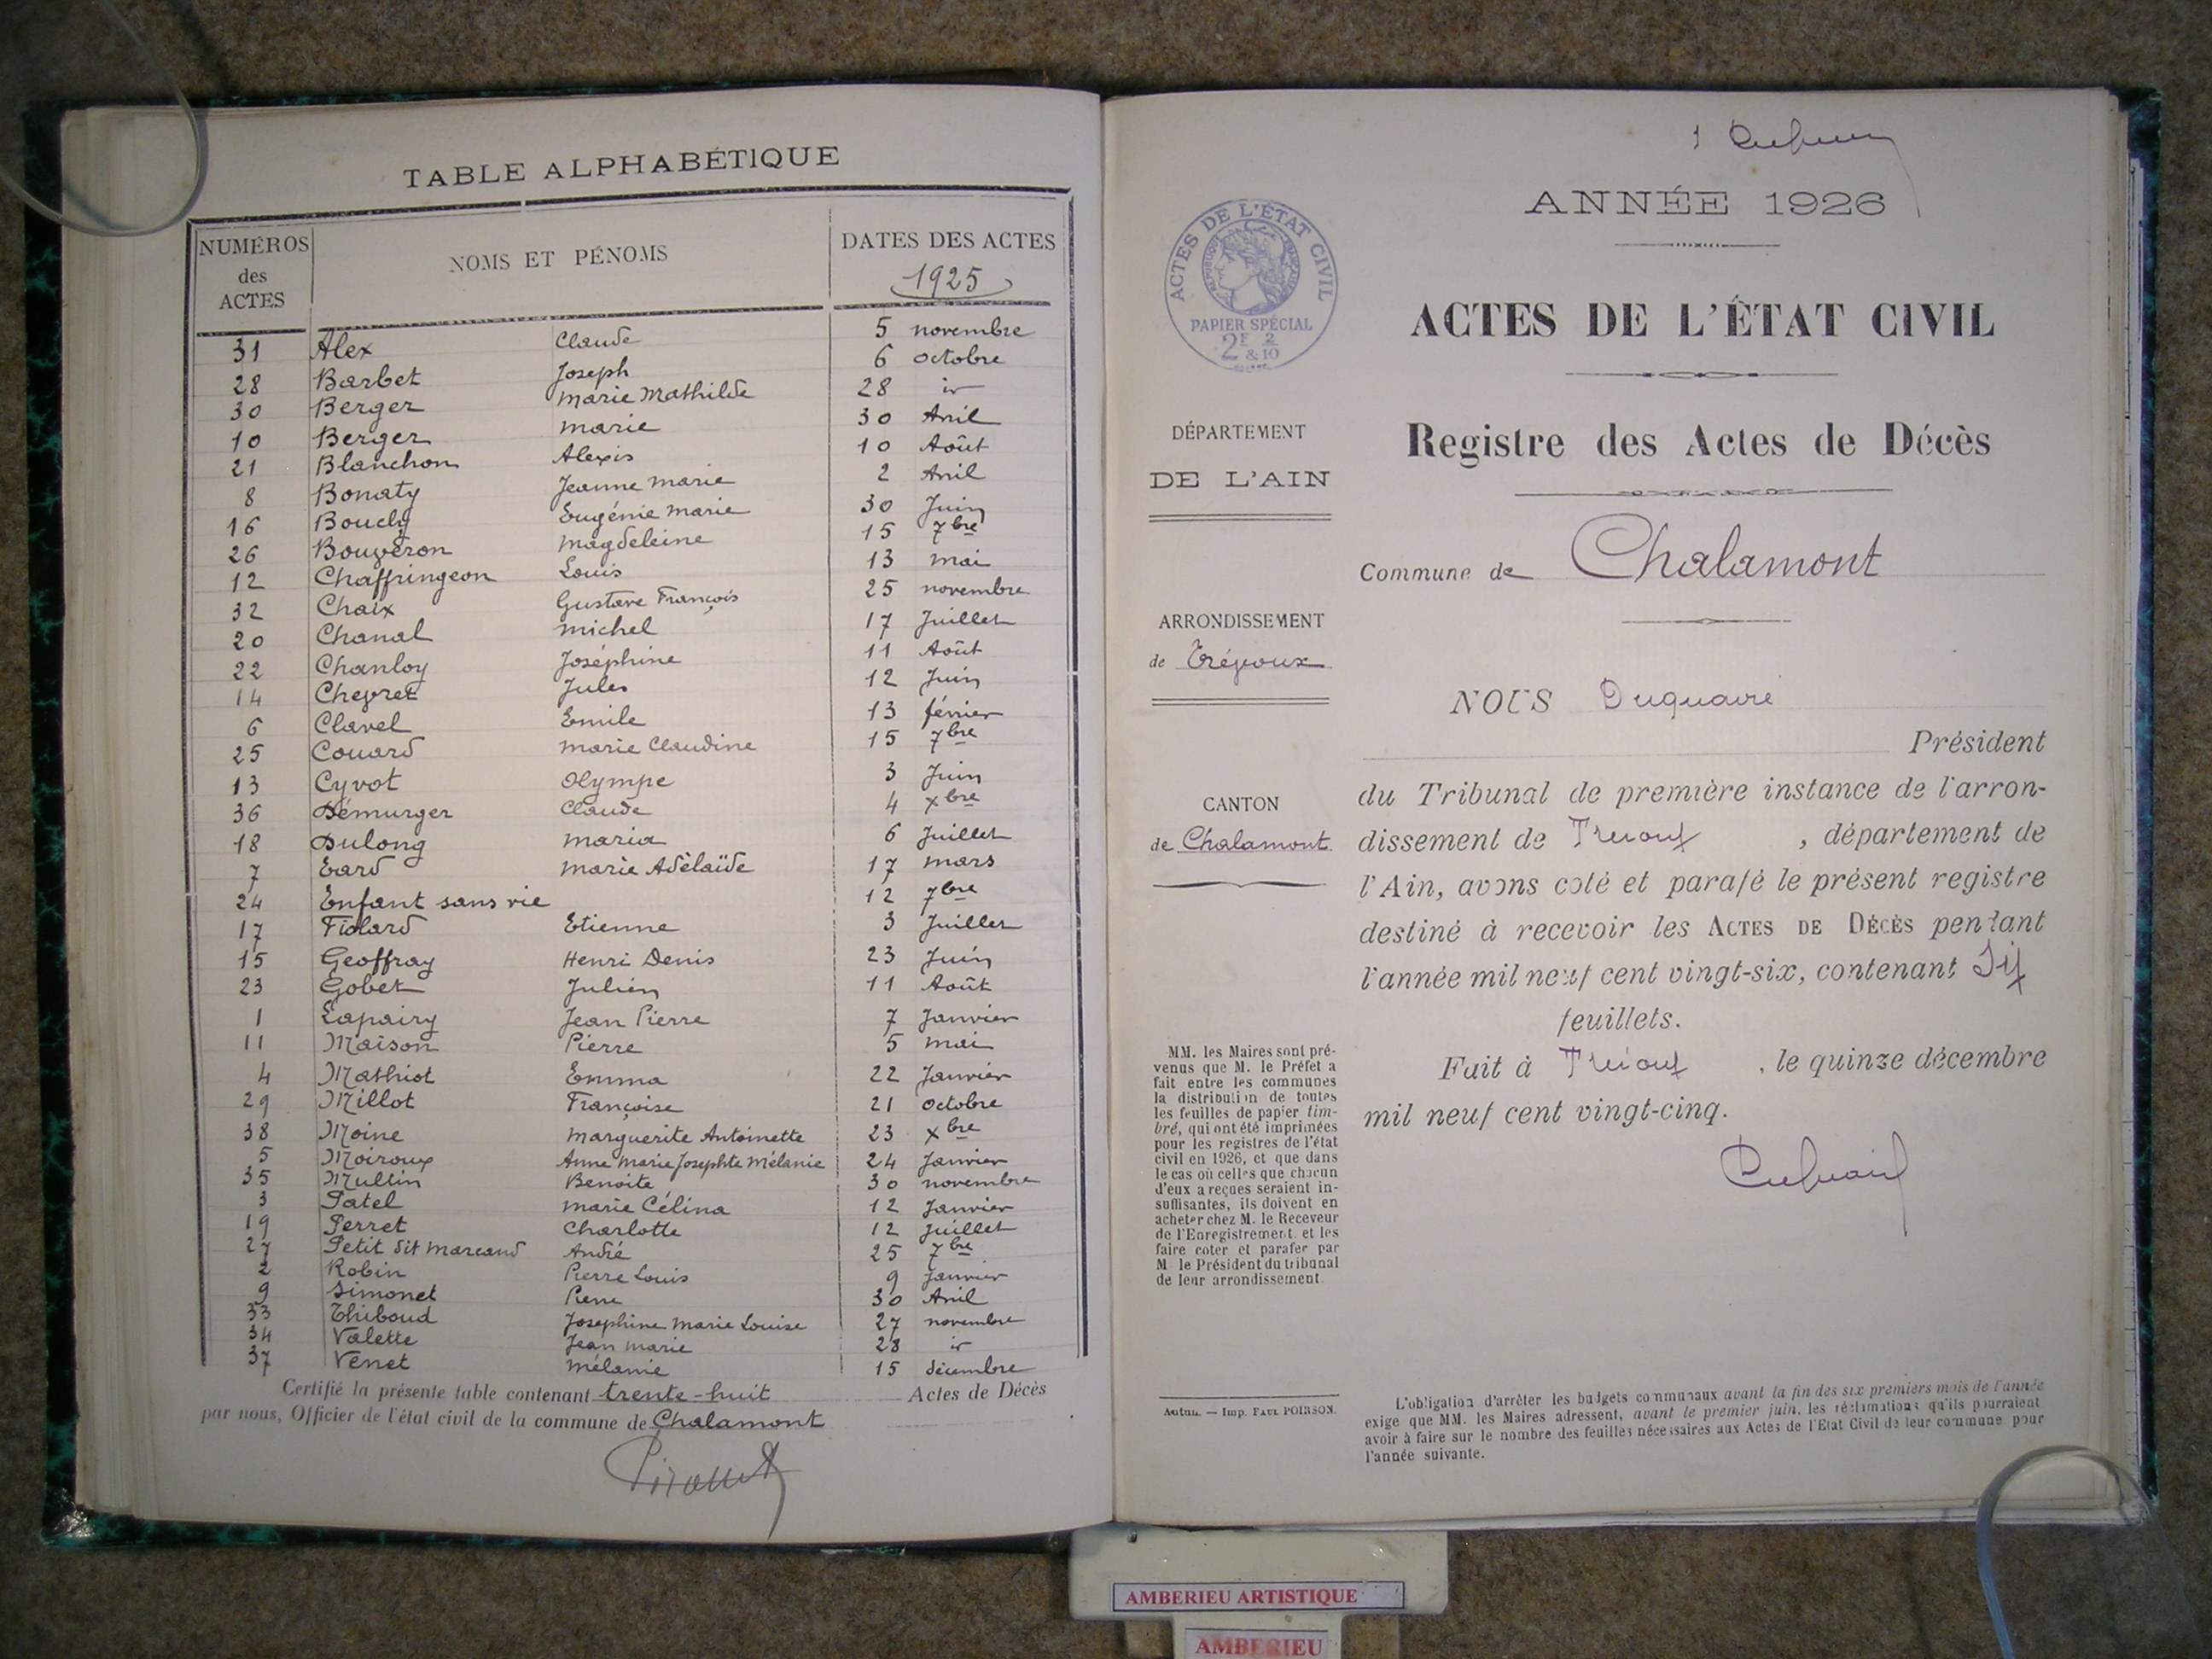 TABLE ALPHABÉTIQUE
NUMÉROS des ACTES NOMS ET PÉNOMS DATES DES ACTES 1925
31 Alex Claude 5 novembre
28 Barbet Joseph 6 octobre
30 Berger Marie Mathilde 28 id
10 Berger Marie 30 Avril
21 Blanchon Alexis 10 Août
8 Bonaty Jeanne Marie 2 Avril
16 Boucly Eugénie Marie 30 Juin
26 Bouveron Magdeleine 15 7bre
12 Chaffringeon Louis 13 mai
32 Chaix Gustave François 25 novembre
20 Chanal Michel 17 Juillet
22 Chanloy Joséphine 11 Août
14 Cheyret Jules 12 Juin
6 Clavel Emile 13 février
25 Couard Marie Claudine 15 7bre
13 Cyvot Olympe 3 Juin
36 Démurger Claude 4 xbre
18 Dulong Maria 6 Juillet
7 Eard Marie Adélaïde 17 mars
24 Enfant sans vie 12 7bre
17 Fiolard Etienne 3 Juillet
15 Geoffray Henri Denis 23 Juin
23 Gobet Julien 11 Août
1 Lapairy Jean Pierre 7 Janvier
11 Maison Pierre 5 mai
4 Mathiot Emma 22 Janvier
29 Millot Françoise 21 octobre
38 Moine Marguerite Antoinette 23 xbre
5 Moiroux Anne Marie Josephte Mélanie 24 Janvier
35 Multin Benoite 30 novembre
3 Patel Marie Célina 12 Janvier
19 Perret Charlotte 12 Juillet
27 Petit dit Marcand André 25 7bre
2 Robin Pierre Louis 9 Janvier
9 Simonet Pierre 30 Avril
33 Thiboud Josephine Marie Louise 27 novembre
34 Valette Jean Marie 28 id
37 Venet Mélanie 15 décembre
Certifié la présente table contenant trente-huit Actes de Décès
par nous, Officier de l'état civil de la commune de Chalamont
1
ANNÉE 1926
ACTES DE L'ÉTAT CIVIL
RÉPUBLIQUE FRANÇAISE
PAPIER SPÉCIAL
2F 2
& 10
ACTES DE L'ÉTAT CIVIL
Registre des Actes de Décès
DÉPARTEMENT
DE L'AIN
Commune de Chalamont
ARRONDISSEMENT
de Trévoux
CANTON
de Chalamont.
NOUS Duquaire
Président
du Tribunal de première instance de l'arron-
dissement de Trévoux, département de
l'Ain, avons coté et parafé le présent registre
destiné à recevoir les ACTES DE DÉCÈS pendant
l'année mil neuf cent vingt-six, contenant Dix
feuillets.
Fait à Trévoux, le quinze décembre
mil neuf cent vingt-cinq.
MM. les Maires sont pré-
venus que M. le Préfet a
fait entre les communes
la distribution de toutes
les feuilles de papier tim-
bré, qui ont été imprimées
pour les registres de l'état
civil en 1926, et que dans
le cas où celles que chacun
d'eux a reçues seraient in-
suffisantes, ils doivent en
acheter chez M. le Receveur
de l'Enregistrement, et les
faire coter et parafer par
M. le Président du tribunal
de leur arrondissement.
Autun. — Imp. PAUL POIRSON.
L'obligation d'arrêter les budgets communaux avant la fin des six premiers mois de l'année
exige que MM. les Maires adressent, avant le premier juin, les réclamations qu'ils pourraient
avoir à faire sur le nombre des feuilles nécessaires aux Actes de l'Etat Civil de leur commune pour
l'année suivante.
AMBERIEU ARTISTIQUE
AMBERIEU